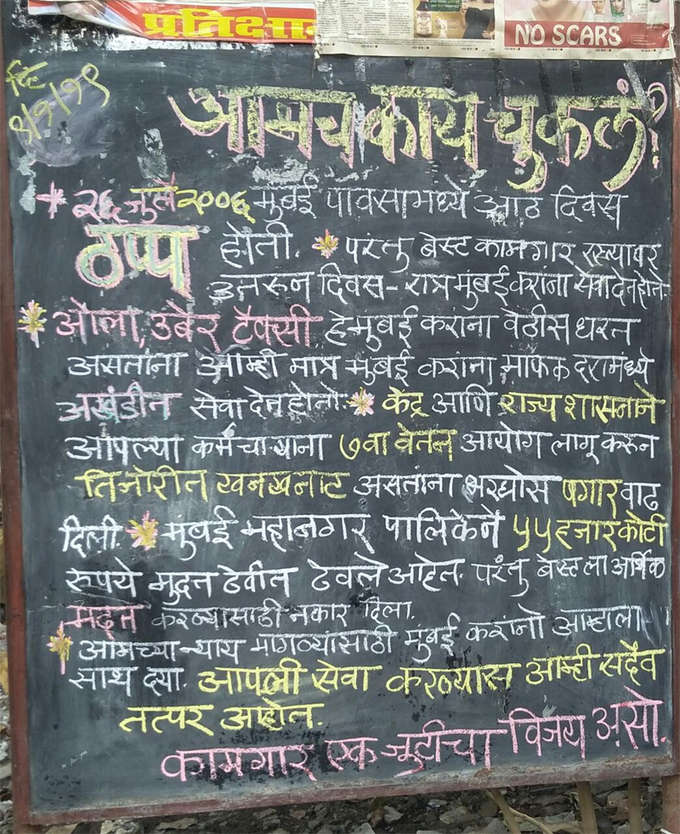 प्रतिक्षा
NO SCARS
दि
९/१/१९
आमच काय चुकलं?
+ २६ जुलै २००६ मुबई पावसामध्ये आठ दिवस
ठप्प होती. * परंतु बेस्ट कामगार रस्त्यावर
उतरून दिवस - रात्र मुंबई करांना सेवा देत होते.
* ओला, उबेर टॅक्सी हे मुंबई करांना वेठीस धरत
असतांना आम्ही मात्र मुंबई करांना माफक दरामध्ये
अखंडीत सेवा देत होतो. * केंद्र आणि राज्य शासनाने
आपल्या कर्मचाऱ्याना ७वा वेतन आयोग लागू करून
तिजोरीत खनखनाट असतांना भरघोस पगार वाढ
दिली. * मुंबई महानगर पालिकेने ५५ हजार कोटी
रुपये मुदत ठेवीत ठेवले आहेत. परंतु बेस्ट ला आर्थिक
मदत करण्यासाठी नकार दिला.
* आमच्या न्याय मागण्यासाठी मुंबई करांनो आम्हाला
साथ द्या. आपली सेवा करण्यास आम्ही सदैव
तत्पर आहोत.
कामगार एक जुटीचा विजय असो.